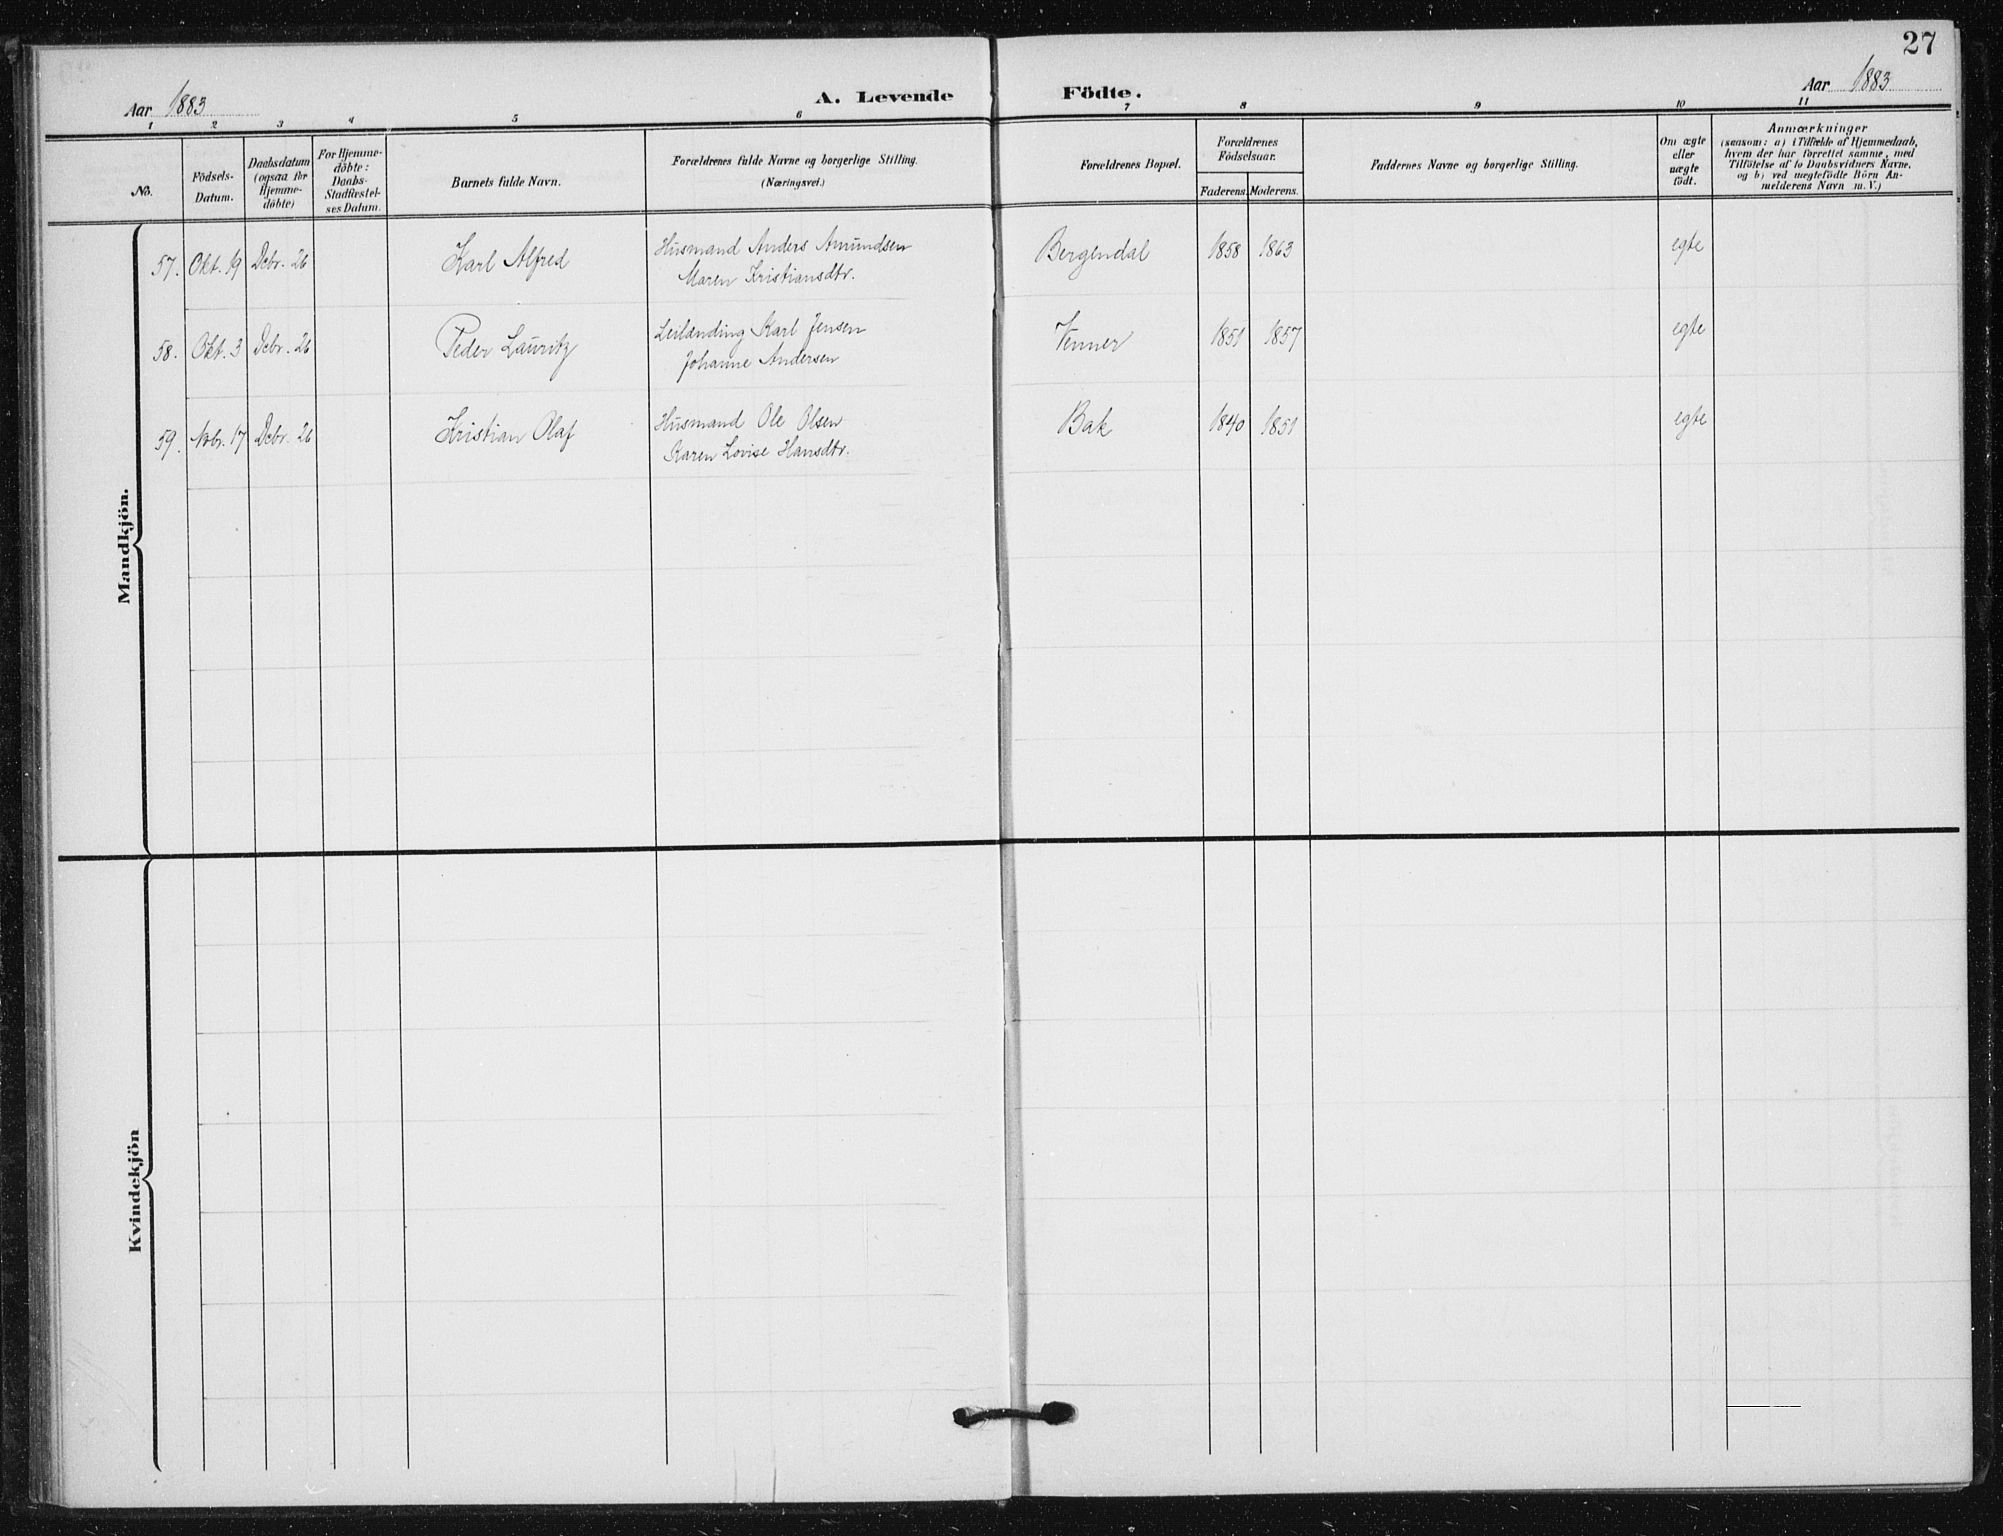 27
Aar 1883
A. Levende Födte.
Aar 1883
1 2 3 4 5 6 7 8 9 10 11
No.
Födsels-
Datum.
Daabsdatum
(ogsaa for
Hjemme-
döbte)
For Hjemme-
döbte:
Daabs-
Stadfæstel-
ses Datum.
Barnets fulde Navn.
Forældrenes fulde Navne og borgerlige Stilling.
(Næringsvei.)
Forældrenes Bopæl.
Forældrenes
Födselsaar.
Faderens. Moderens.
Faddernes Navne og borgerlige Stilling.
Om ægte
eller
uægte
födt.
Anmærkninger
(saasom: a) i Tilfælde af Hjemmedaab,
hvem der har forrettet samme, med
Tilföielse af to Daabsvidners Navne,
og b) ved uægtefödte Börn An-
melderens Navn m. V.)
Mandkjön.
57. Okt. 19 Dcbr. 26 Karl Alfred Husmand Anders Amundsen Bergendal 1858 1863 egte
Maren Kristiansdtr.
58. Okt. 3 Dcbr. 26 Peder Lauritz Leilænding Karl Jensen Venner 1851 1857 egte
Johanne Andersen
59. Nvbr. 17 Dcbr. 26 Kristian Olaf Husmand Ole Olsen Bak 1840 1851 egte
Karen Lovise Hansdtr.
Kvindekjön